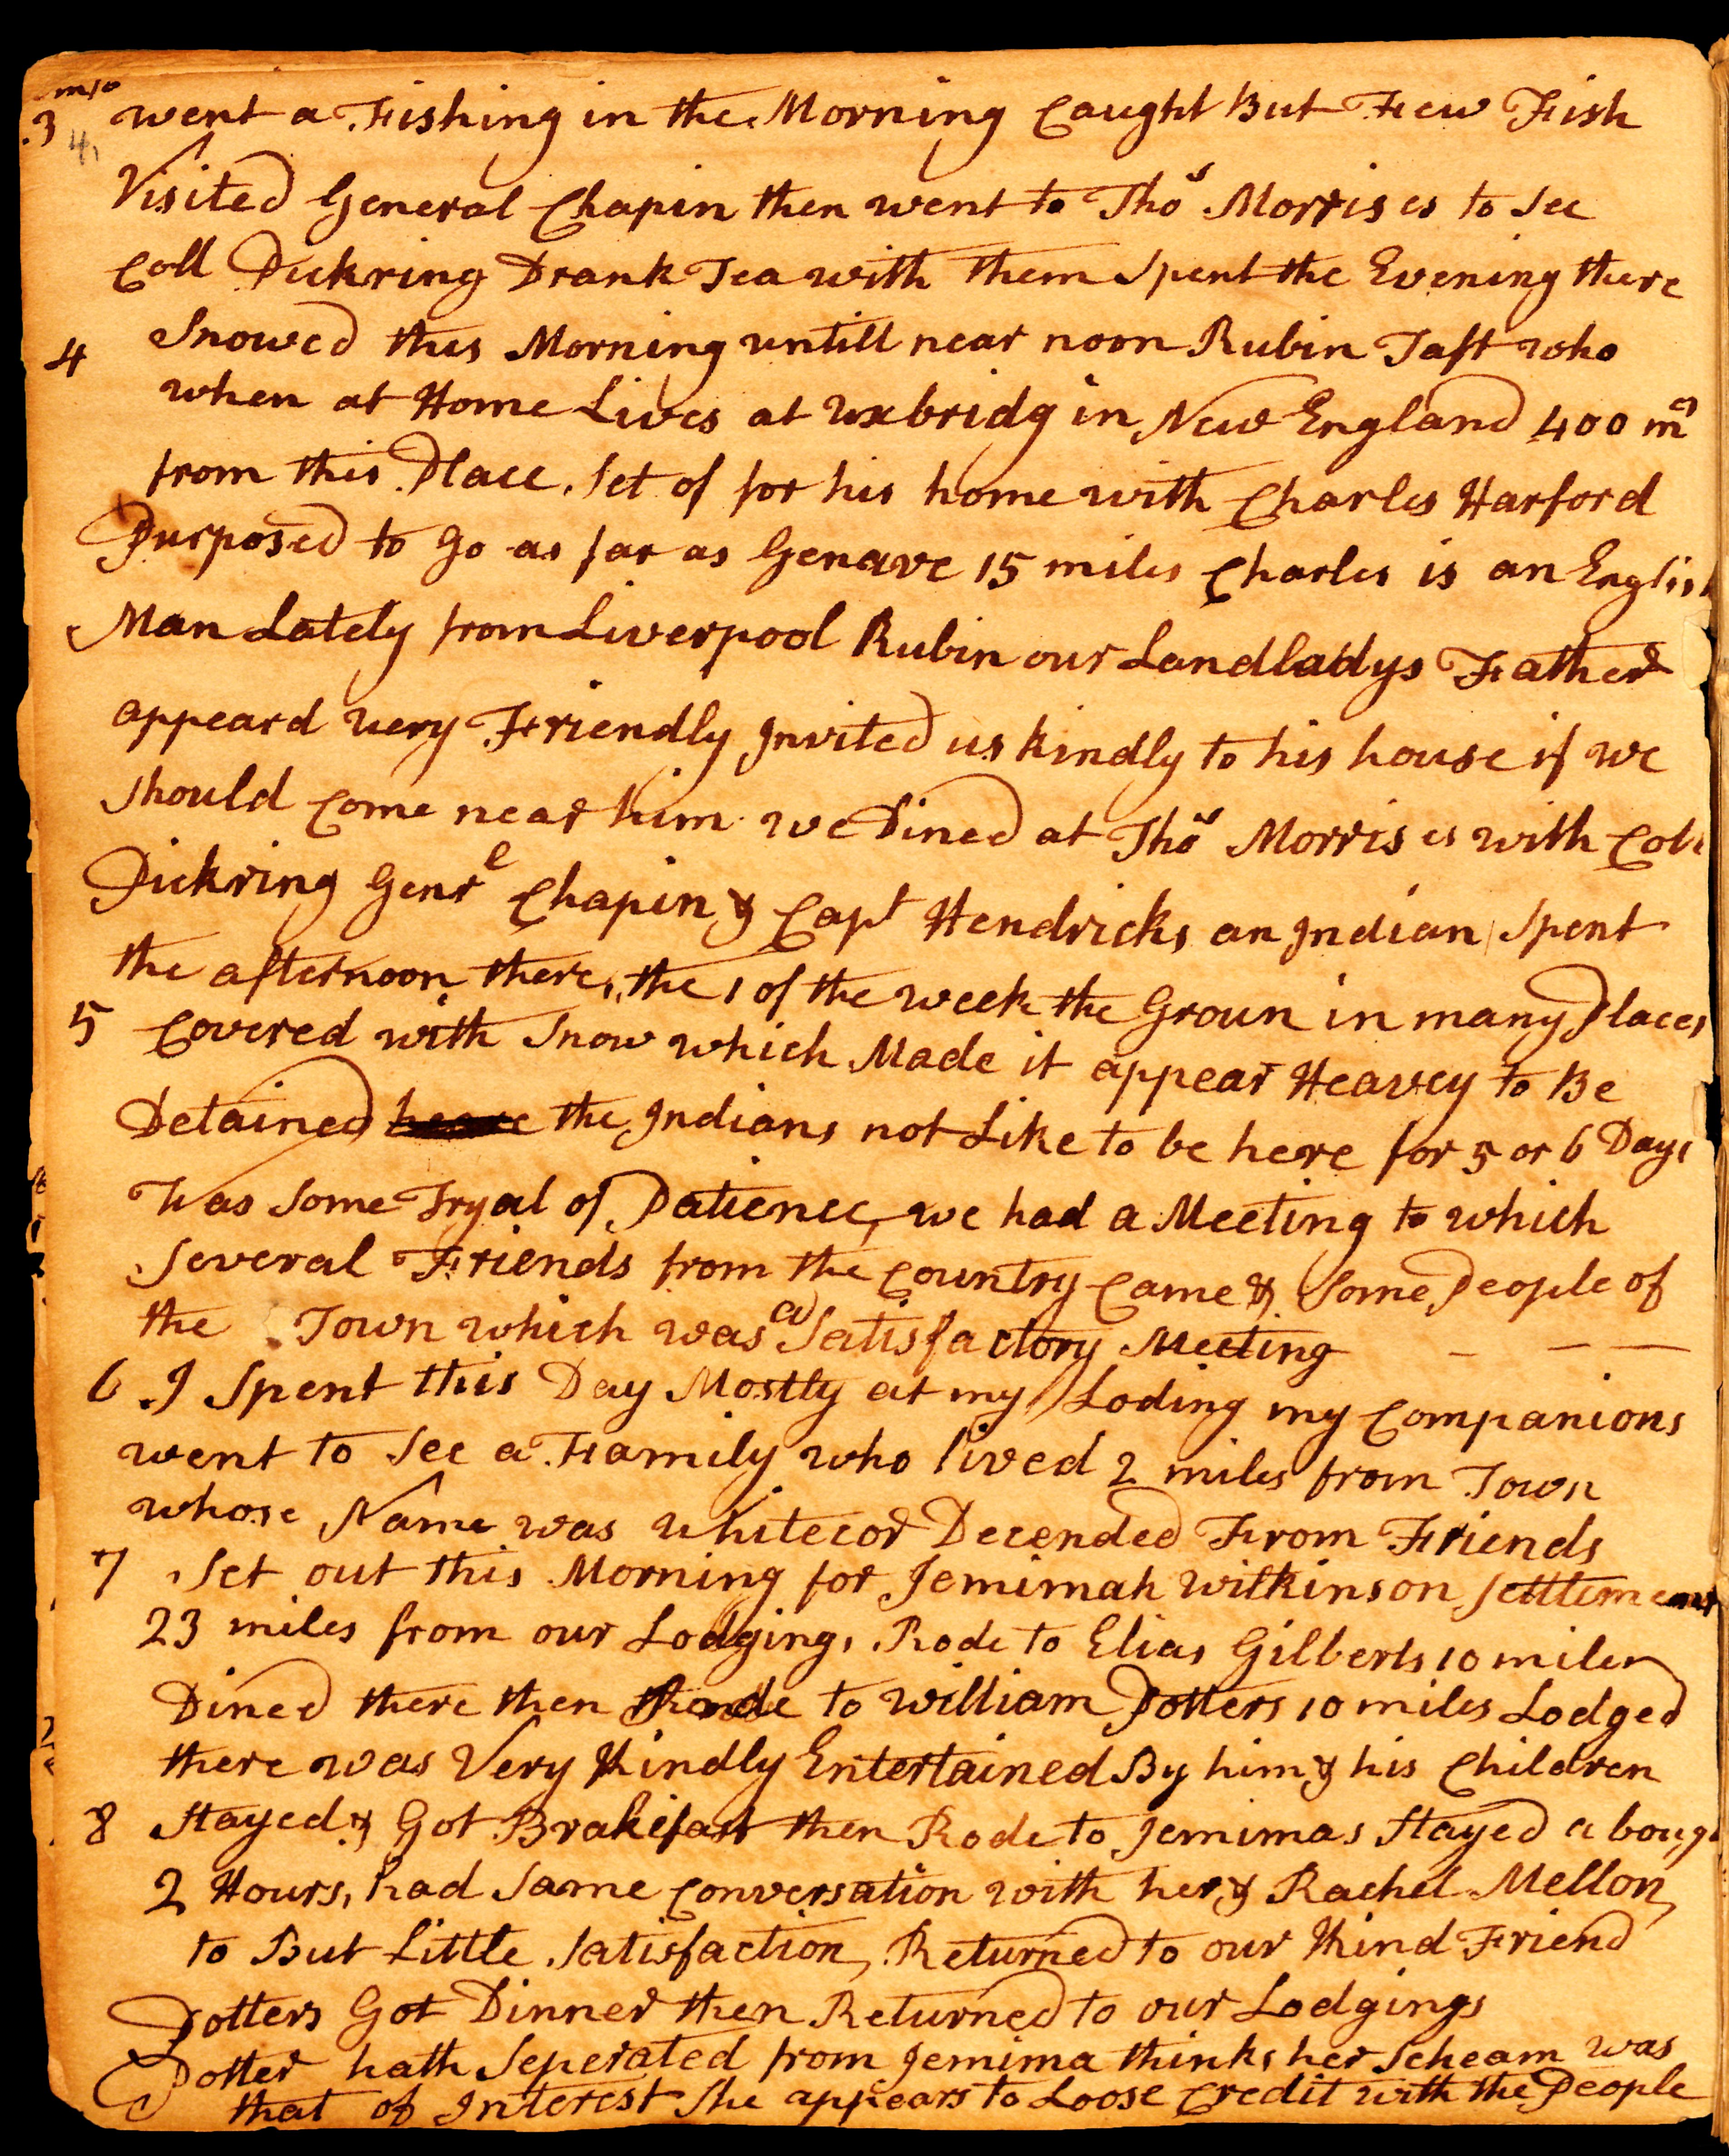 m/o
3 went a Fishing in the Morning Caught But Few Fish
4,
Visited General Chapin then went to Thos Morrises to See
Coll Pickring Drank Tea with them Spent the Evening there
4 Snowed this Morning untill near noon Rubin Taft who
when at Home Lives at Uxbridg in New England 400 ms
from this Place, Set of for his home with Charles Harford
Purposed to go as far as Genave 15 miles Charles is an English
Man Lately from Liverpool Rubin our Landladys Father
appeard very Friendly Invited us kindly to his house if we
should Come near him we Dined at Thos Morrises with Coll
Pickring Genrl Chapin & Capt Hendricks an Indian Spent
the afternoon there, the 1 of the week the Groun in many Places
5 Covered with Snow which Made it appear Heavey to Be
Detained the Indians not Like to be here for 5 or 6 Days
Was Some Tryal of Patience, we had a Meeting to which
Several Friends from the Country Came & Some People of
the Town which was a Satisfactory Meeting - - -
6 I Spent this Day Mostly at my Loding my Companions
went to See a Family who lived 2 miles from Town
whose Name was Whitecor Decended From Friends
7 Set out this Morning for Jemimah Wilkinson Settlement
23 miles from our Lodging, Rode to Elias Gilberts 10 miles
Dined there then Rode to William Potters 10 miles Lodged
there was Very Kindly Entertained By him & his Children
8 Stayed & Got Brakefast then Rode to Jemimas Stayed a bough
2 Hours, had Some Conversation with her & Rachel Mellon
to But Little Satisfaction, Returned to our Kind Friend
Potters Got Dinner then Returned to our Lodgings
Potter hath Seperated from Jemima thinks her Scheam was
that of Interest She appears to Loose Credit with the People